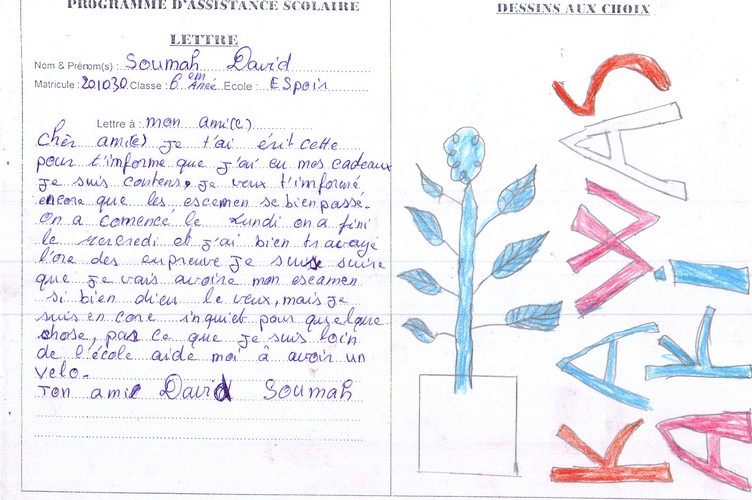 PROGRAMME D'ASSISTANCE SCOLAIRE
LETTRE
Nom & Prénom(s) : Soumah David
Matricule : 201030 Classe : 6 em Année Ecole : ESpoir
Lettre à : mon ami(e)
Chèr ami(e) je t'ai érit cette
pour t'informe que j'ai eu mos cadeaux
je suis contens, je veux t'informé
encore que les escemen se bien passé.
On a comencé le Lundi on a fini
le Mercredi et j'ai bien travayé
l'ore des enpreuve je suis suire
que je vais avoire mon escamen
si bien dieu le veux, mais je
suis en core inquiet pour quelque
chose, pas ce que je suis loin
de l'école aide moi à avoir un
velo.
Ton ami David Soumah
DESSINS AUX CHOIX
KAWAS
AKi